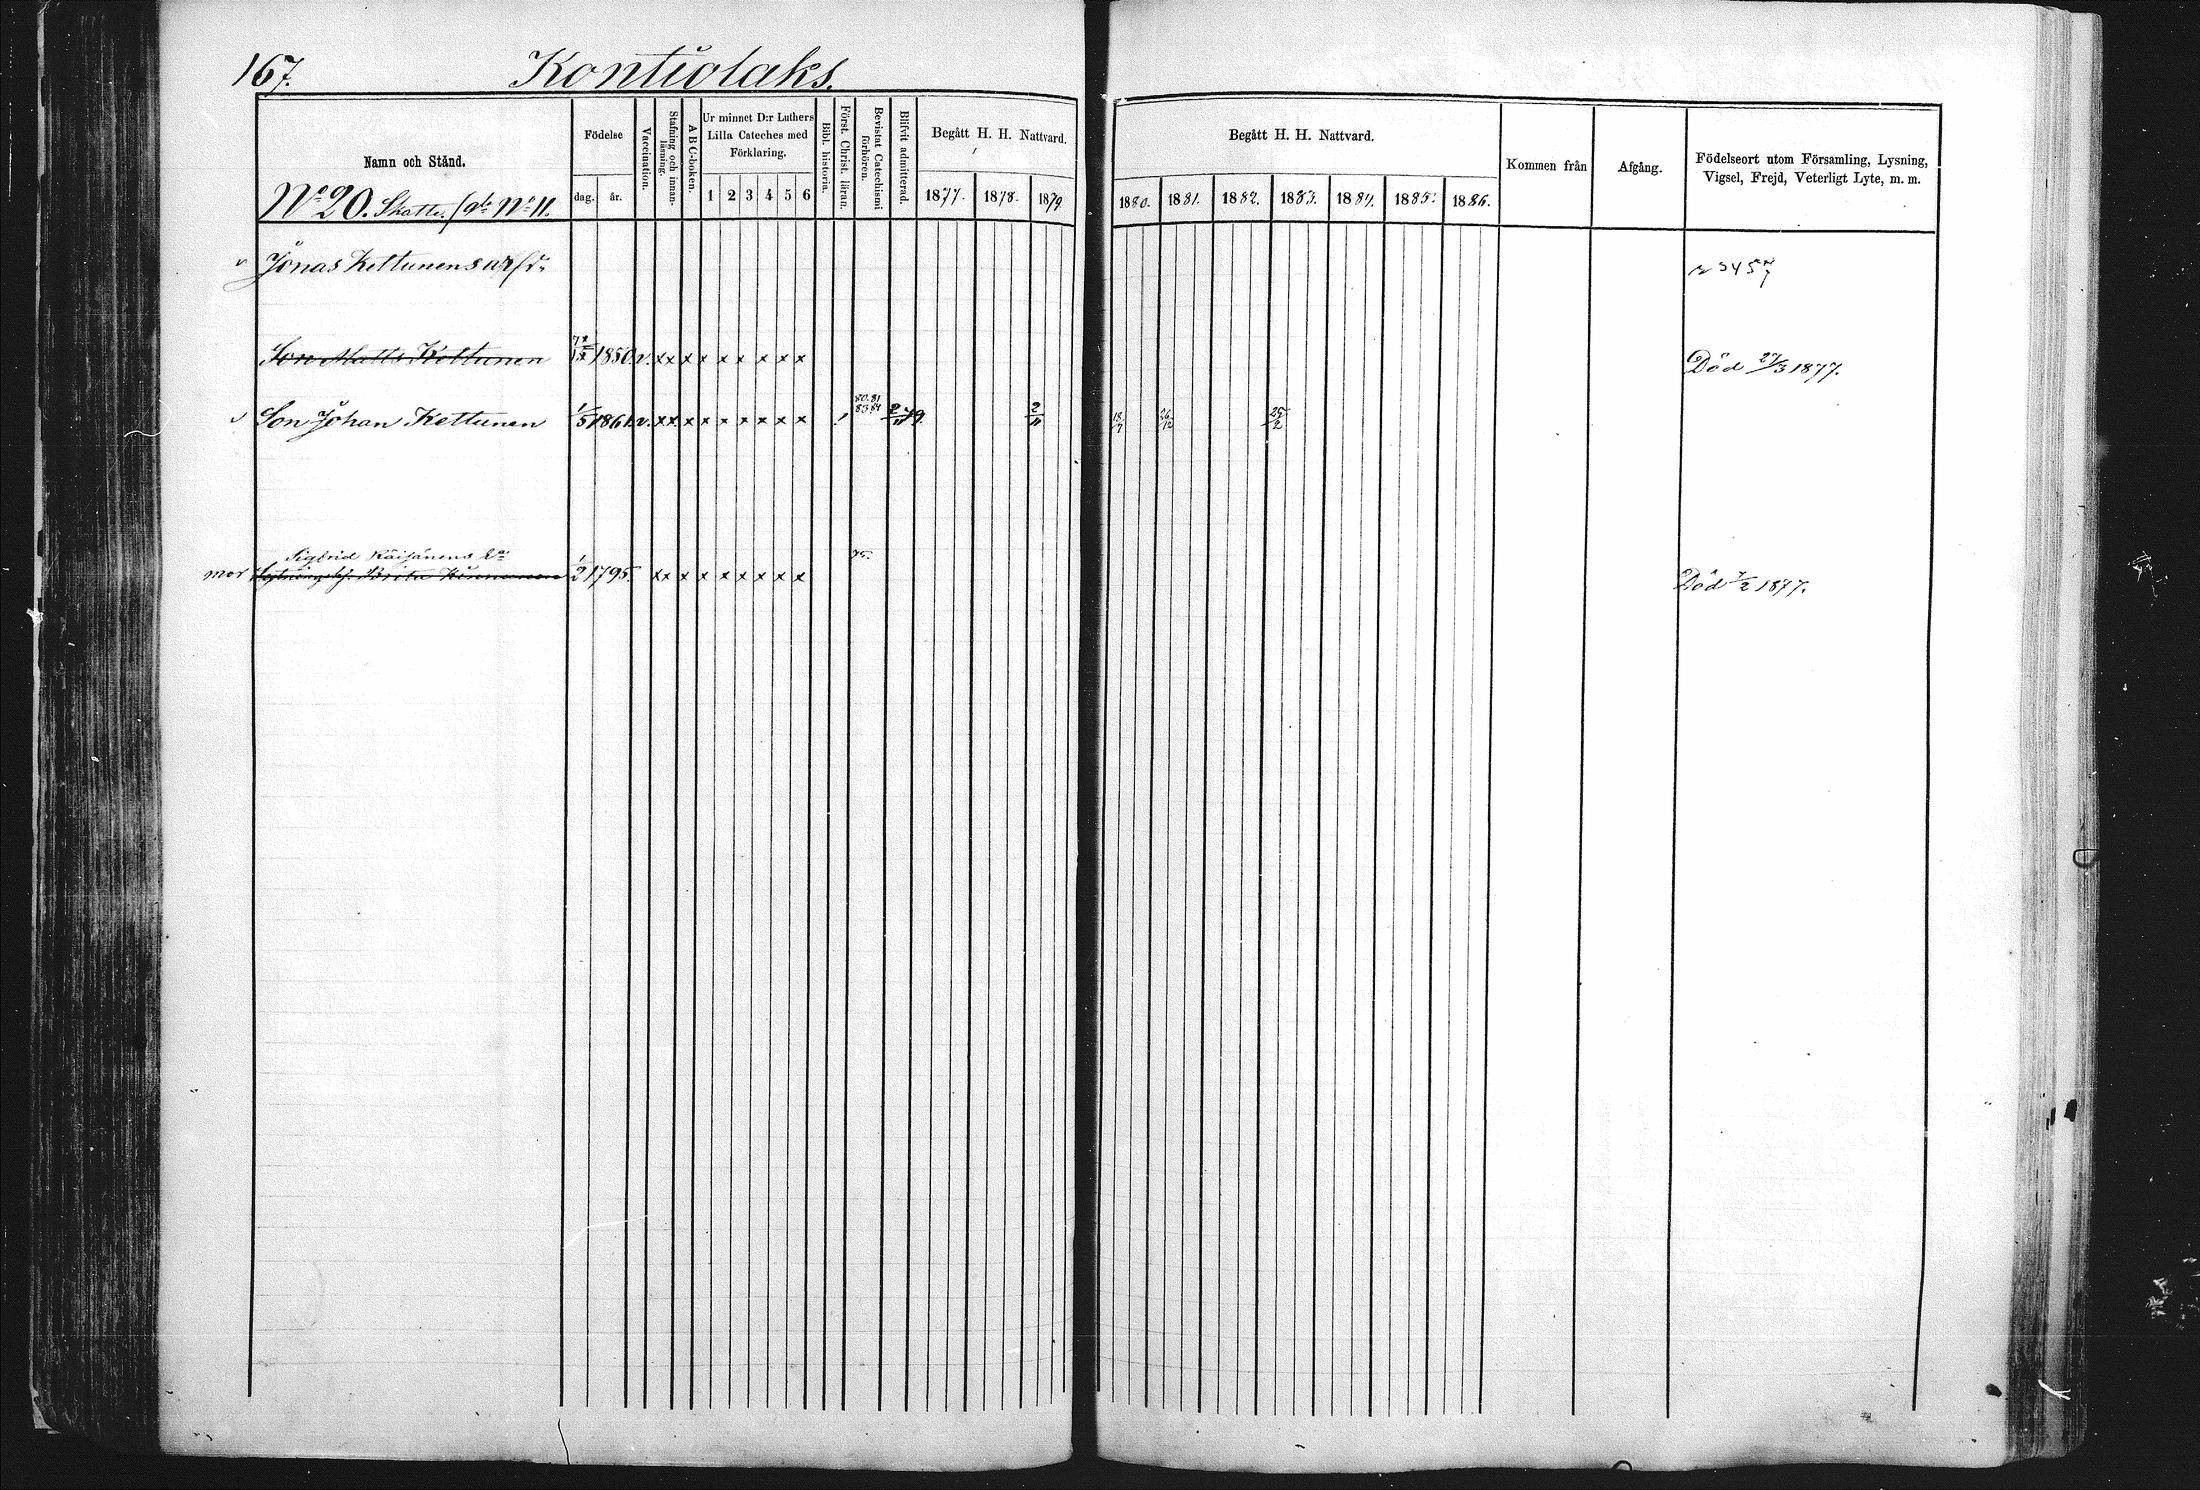 167. Kontiolaks.
Namn och Stånd.
Födelse
dag. år.
Vaccination.
Stafning och innanläsning.
A B C-boken.
Ur minnet D:r Luthers Lilla Cateches med Förklaring.
1 2 3 4 5 6
Bibl. historia.
Först. Christ. läran.
Bevistat Catechismi förhören.
Blifvit admitterad.
Begått H. H. Nattvard.
1877. 1878. 1879
Begått H. H. Nattvard.
1880. 1881. 1882. 1883. 1884. 1885. 1886.
Kommen från
Afgång.
Födelseort utom Församling, Lysning, Vigsel, Frejd, Veterligt Lyte, m. m.
No 20. Skatte. No 11.
Jonas Kettunens
Son Matts Kettunen 1850. v. x x x x x x x x x Död 27/3 1877.
Son Johan Kettunen 1/5 1861. v. x x x x x x x x x 80.81 83.84 2/11 79. 2/11 18/7 26/12 25/2
Sigfrid
mor Brita 1/2 1795. x x x x x x x x x 75. Död 7/2 1877.